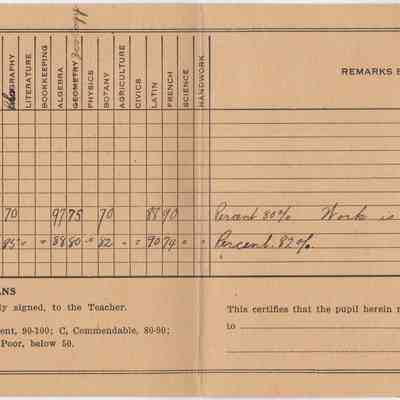 OGRAPHY LITERATURE BOOKKEEPING ALGEBRA GEOMETRY PHYSICS BOTANY AGRICULTURE CIVICS LATIN FRENCH SCIENCE HANDWORK
REMARKS B
70 97 75 70 88 90 Percent 80% Work is
85 " " 88 80 " 82 " " 90 74 " " Percent. 82%.
ANS
ly signed, to the Teacher.
ent, 90-100; C, Commendable, 80-90;
Poor, below 50.
This certifies that the pupil herein n
to